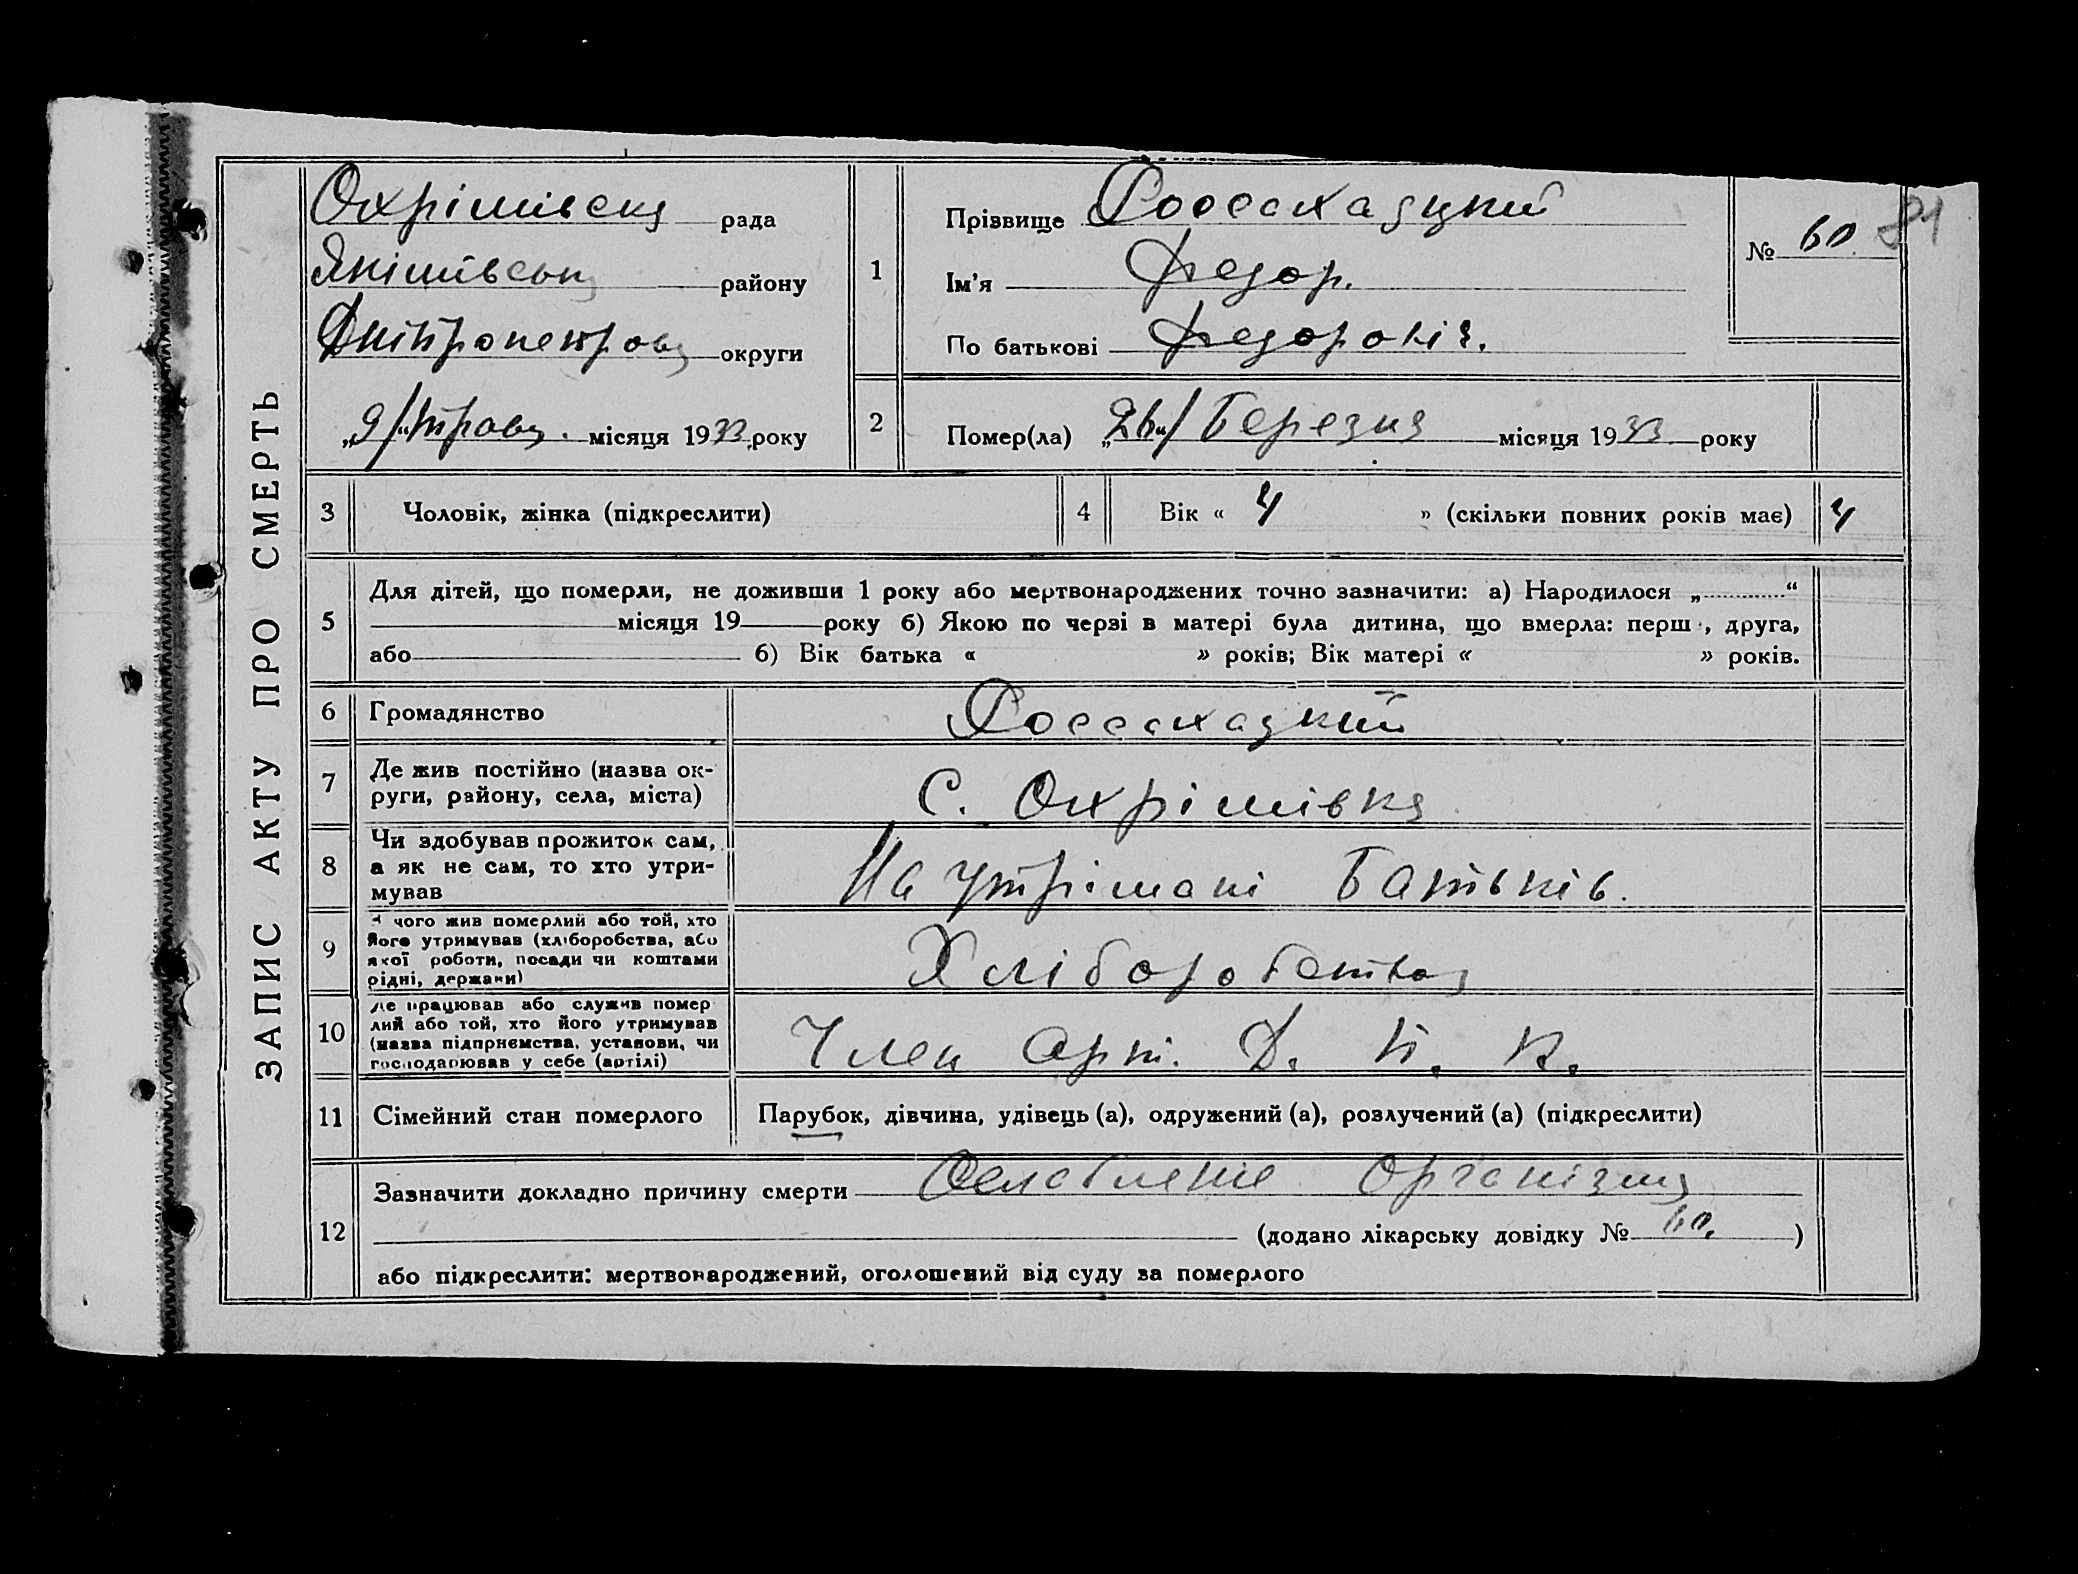 ЗАПИС АКТУ ПРО СМЕРТЬ
Охрімівська рада
Якімівськ району
Дніпропетровс округи
„9/“ травця місяця 1933 року
1
Прізвище Россохацкий
Ім’я Федор.
По батькові Федоровіч.
№ 60 81
2
Помер(ла) „26“/ Березня місяця 1933 року
3 Чоловік, жінка (підкреслити)
4 Вік « 4 » (скільки повних років має) 4
5 Для дітей, що померли, не доживши 1 року або мертвонароджених точно зазначити: а) Народилося „ “
місяця 19 року б) Якою по черзі в матері була дитина, що вмерла: перш , друга,
або б) Вік батька « » років; Вік матері « » років.
6 Громадянство Россохацкий
7 Де жив постійно (назва ок-
руги, району, села, міста) С. Охрімівка
8 Чи здобував прожиток сам,
а як не сам, то хто утри-
мував На утрімані Батьків.
9 чого жив померлий або той, хто
його утримував (хліборобства, або
якої роботи, посади чи коштами
рідні, держави) Хліборобства
10 Де працював або служив помер
лий або той, хто його утримував
(назва підприємства, установи, чи
господарював у себе (артілі) Член арт. Д. П. К.
11 Сімейний стан померлого Парубок, дівчина, удівець (а), одружений (а), розлучений (а) (підкреслити)
12 Зазначити докладно причину смерти Ослабленіе Організма
(додано лікарську довідку № 60. )
або підкреслити: мертвонароджений, оголошений від суду за померлого